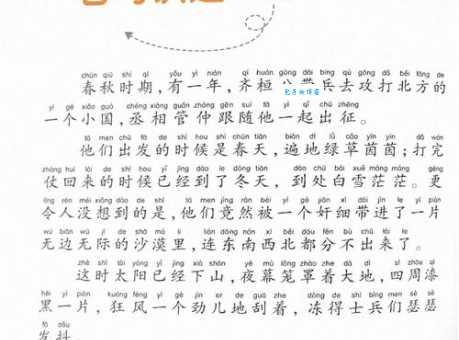 chūn qiū shí qī yǒu yì nián qí huán gōng dài bīng qù gōng dǎ běi fāng de
春秋时期,有一年,齐桓 兵去攻打北方的
yí gè xiǎo guó chéng xiàng guǎn zhòng gēn suí tā yì qǐ chū zhēng
一个小国,丞相管仲跟随他一起出征。
tā men chū fā de shí hou shì chūn tiān biàn dì lǜ cǎo yīn yīn dǎ wán
他们出发的时候是春天,遍地绿草茵茵;打完
zhàng huí lái de shí hou yǐ jīng dào le dōng tiān dào chù bái xuě máng máng gèng
仗回来的时候已经到了冬天,到处白雪茫茫。更
lìng rén méi xiǎng dào de shì tā men jìng rán bèi yí gè jiān xì dài jìn le yí piàn
令人没想到的是,他们竟然被一个奸细带进了一片
wú biān wú jì de shā mò lǐ lián dōng nán xī běi dōu fēn bù chū lái le
无边无际的沙漠里,连东南西北都分不出来了。
zhè shí tài yáng yǐ jīng xià shān yè mù lǒng zhào zhe dà dì sì zhōu qī
这时太阳已经下山,夜幕笼罩着大地,四周漆
hēi yí piàn kuáng fēng yí gè jìn er de guā zhe dòng de shì bīng men sè sè
黑一片,狂风一个劲儿地刮着,冻得士兵们瑟瑟
fā dǒu
发抖